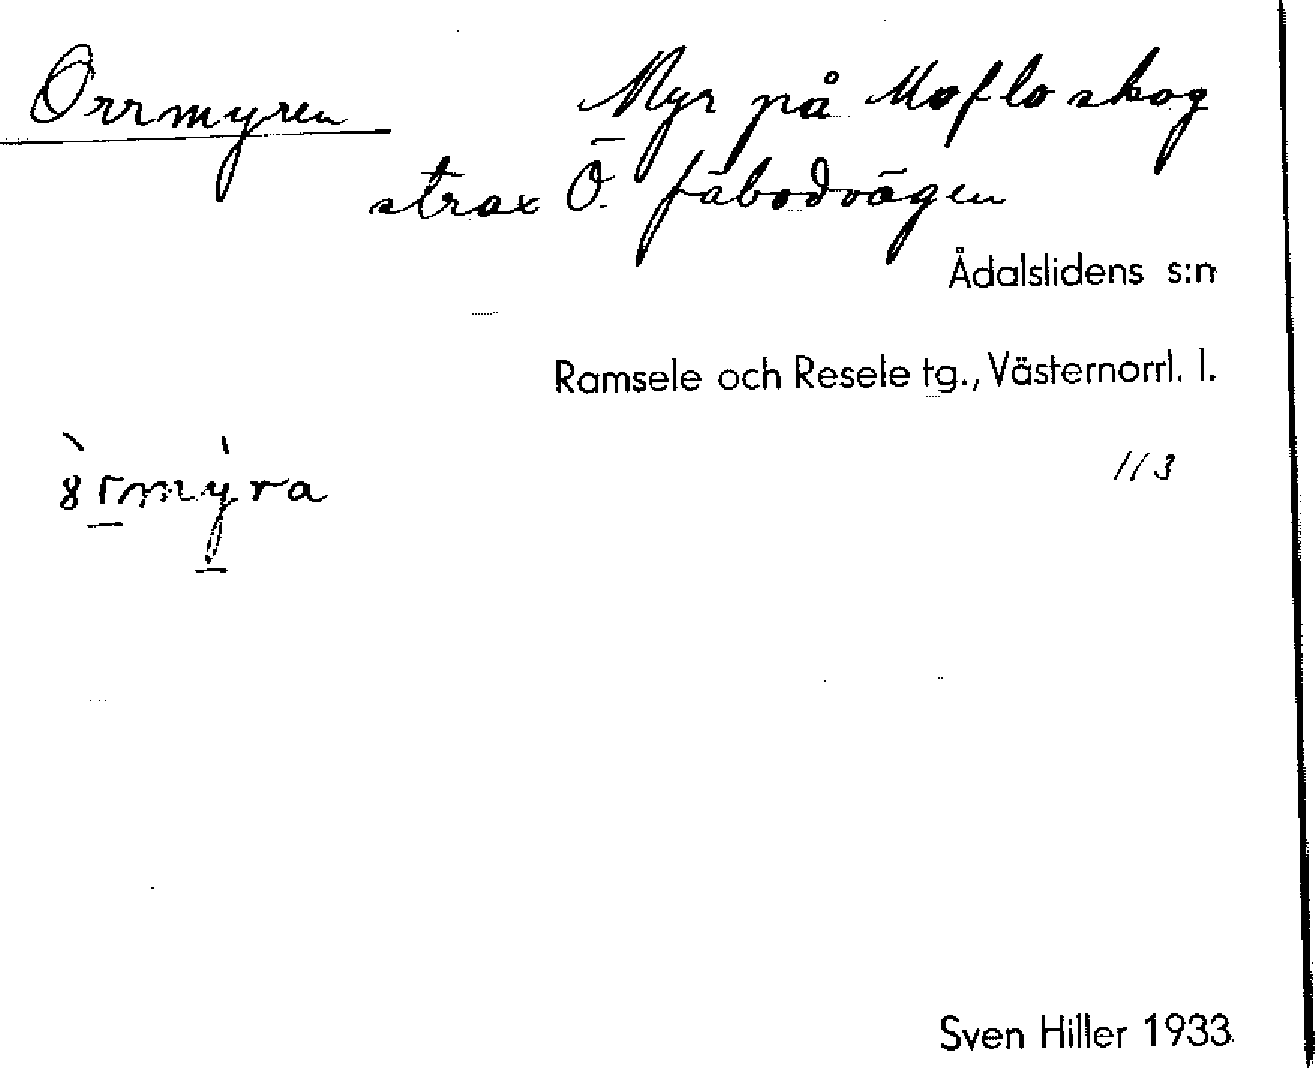 Orrmyren Myr på Moflo skog
strax Ö. fäbodvägen
Ådalslidens s:n
Ramsele och Resele tg., Västernorrl. l.
113
Sven Hiller 1933